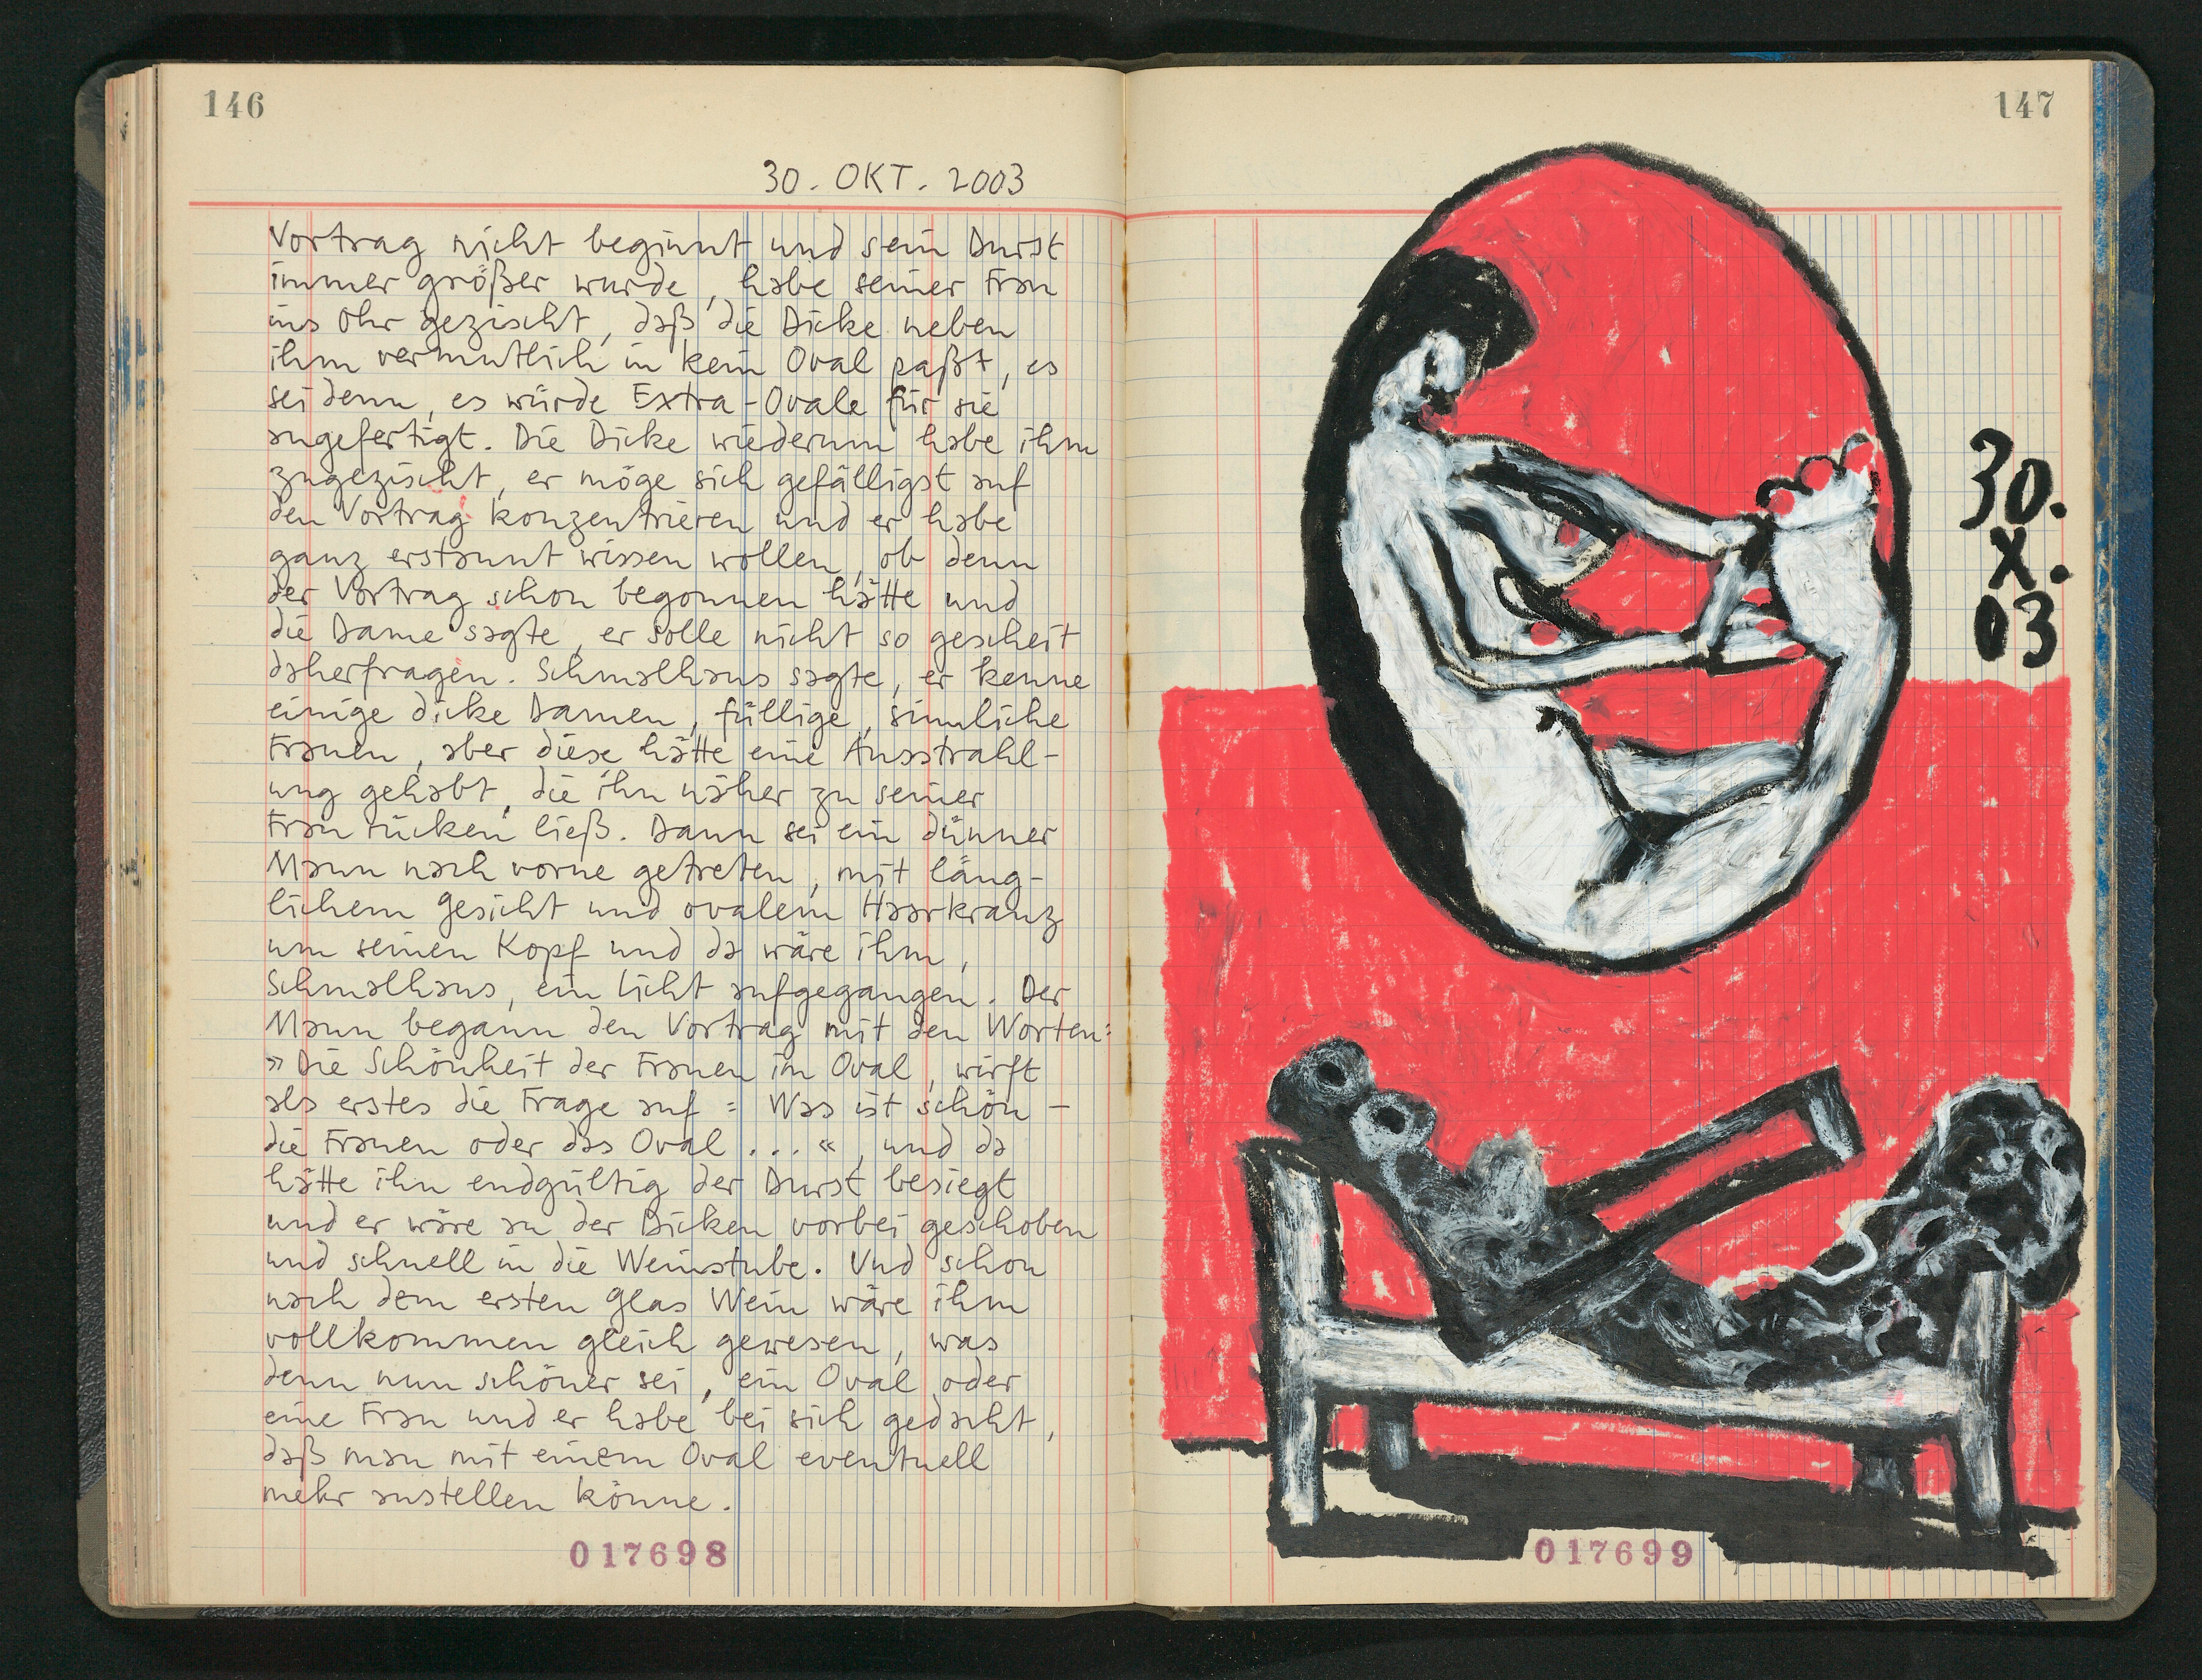 146
30. OKT. 2003
Vortrag nicht beginnt und sein Durst
immer größer wurde, habe seiner Frau
ins Ohr gezischt, daß die Dicke neben
ihm vermutlich in kein Oval paßt, es
sei denn, es würde Extra-Ovale für sie
angefertigt. Die Dicke wiederum habe ihm
zugezischt, er möge sich gefälligst auf
den Vortrag konzentrieren und er habe
ganz erstaunt wissen wollen, ob denn
der Vortrag schon begonnen hätte und
die Dame sagte, er solle nicht so gescheit
daherfragen. Schmalhans sagte, er kenne
einige dicke Damen, füllige, sinnliche
Frauen, aber diese hätte eine Ausstrahl-
ung gehabt, die ihn näher zu seiner
Frau rücken ließ. Dann sei ein dünner
Mann nach vorne getreten, mit läng-
lichem Gesicht und ovalem Haarkranz
um seinen Kopf und da wäre ihm,
Schmalhans, ein Licht aufgegangen. Der
Mann begann den Vortrag mit den Worten:
»Die Schönheit der Frauen im Oval, wirft
als erstes die Frage auf: Was ist schön –
die Frauen oder das Oval ...«, und da
hätte ihn endgültig der Durst besiegt
und er wäre an der Dicken vorbei geschoben
und schnell in die Weinstube. Und schon
nach dem ersten Glas Wein wäre ihm
vollkommen gleich gewesen, was
denn nun schöner sei, ein Oval oder
eine Frau und er habe bei sich gedacht,
daß man mit einem Oval eventuell
mehr anstellen könne.
017698
147
30.
X.
03
017699